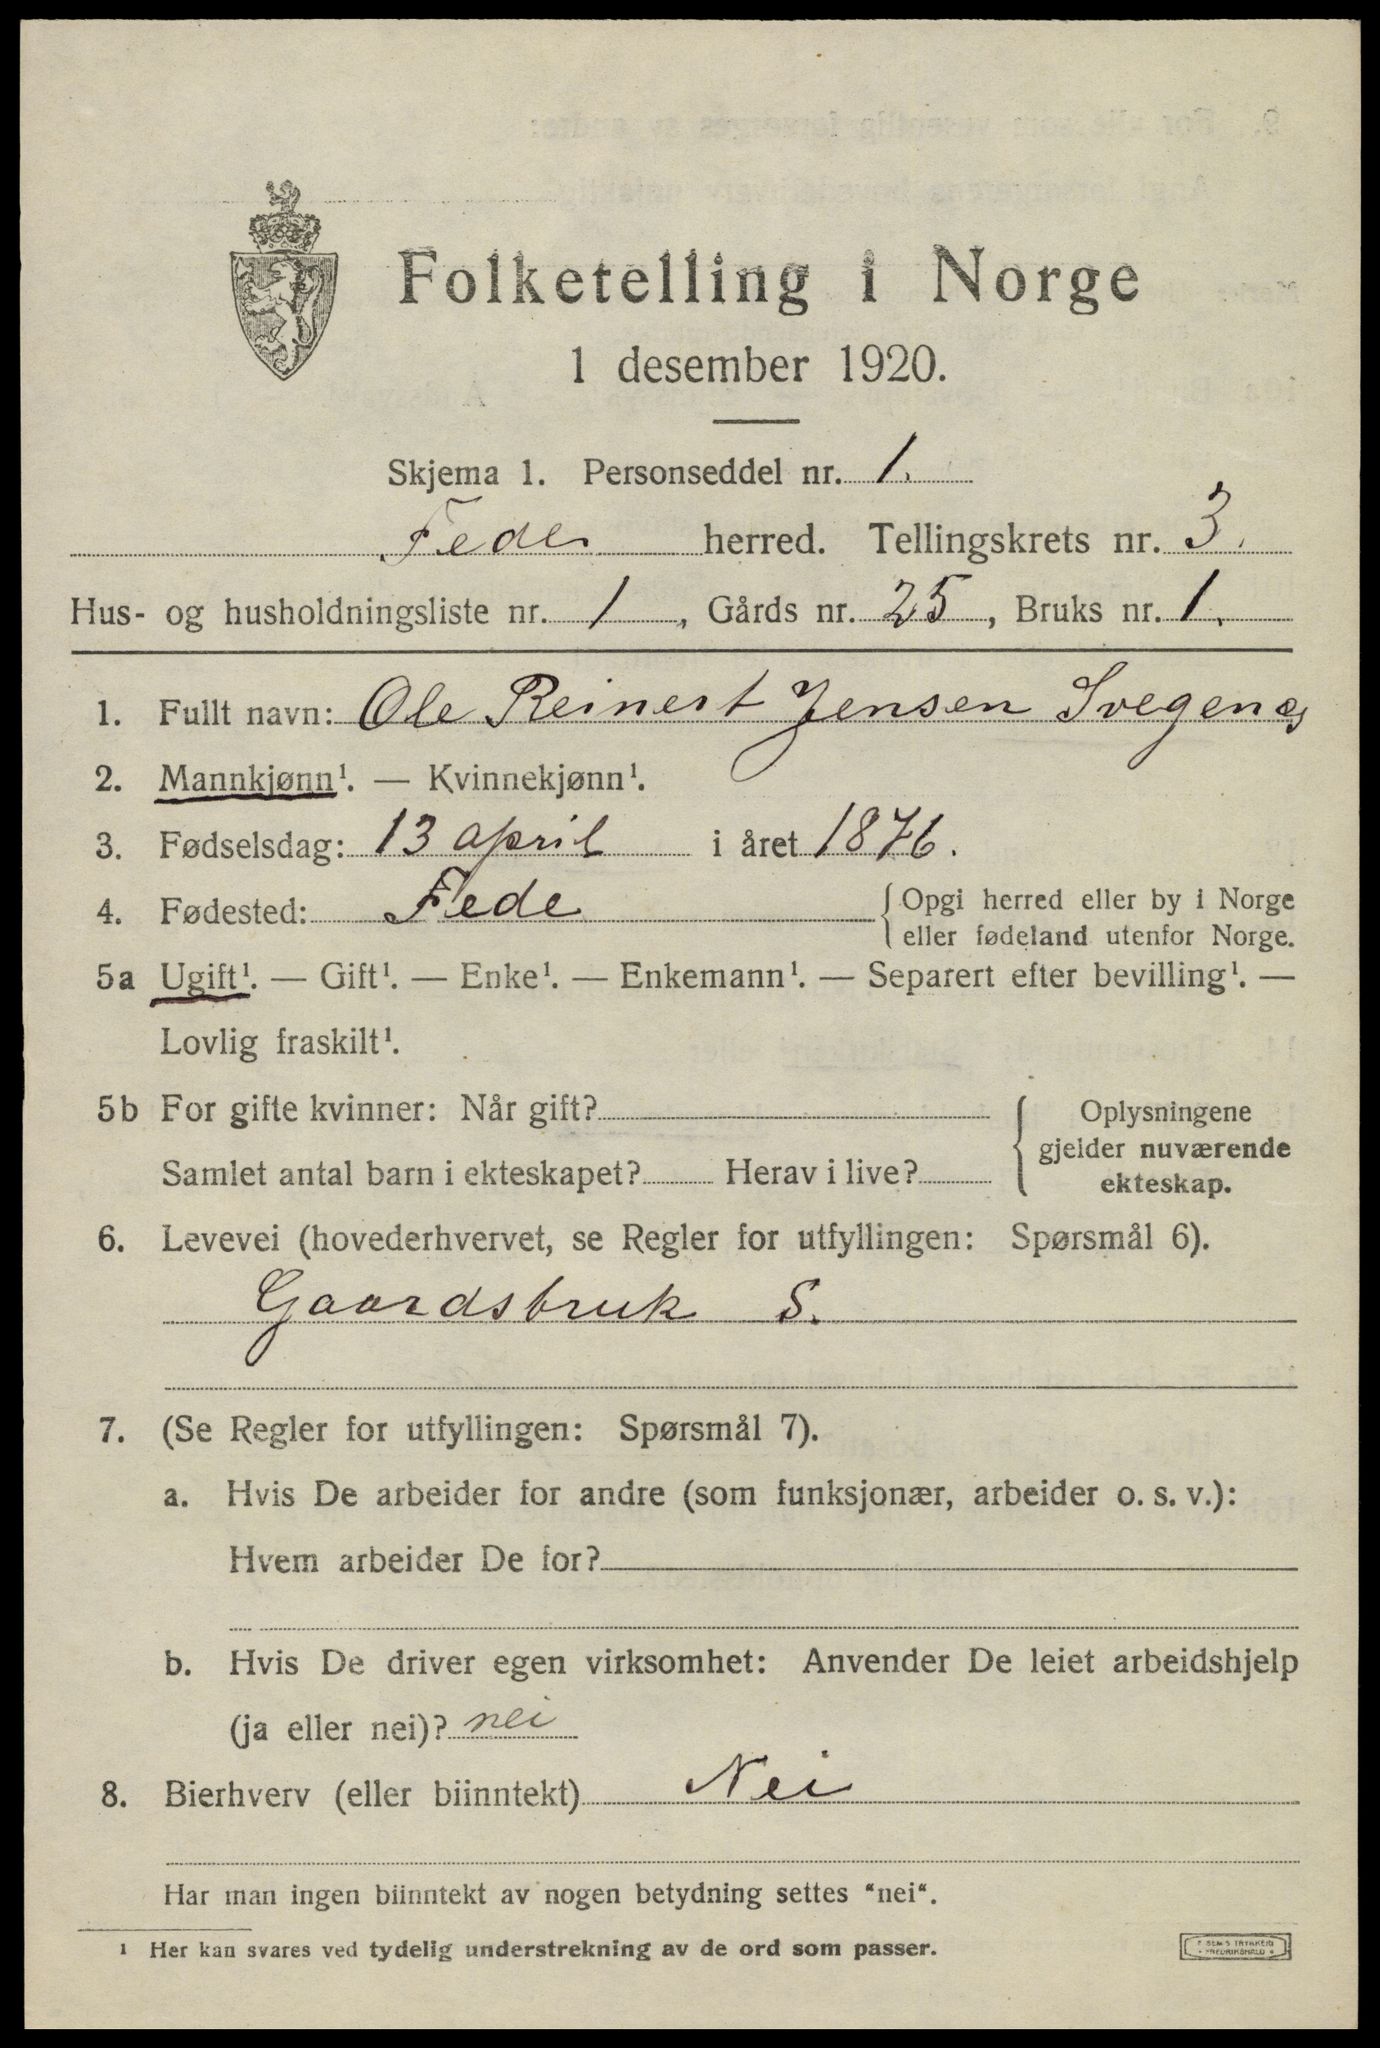 Folketelling i Norge
1 desember 1920.
Skjema 1. Personseddel nr. 1.
Fede herred. Tellingskrets nr. 3.
Hus- og husholdningsliste nr. 1, Gårds nr. 25, Bruks nr. 1.
1. Fullt navn: Ole Reinert Jensen Svegenes
2. Mannkjønn¹. — Kvinnekjønn¹.
3. Fødselsdag: 13 april i året 1876.
4. Fødested: Fede { Opgi herred eller by i Norge
eller fødeland utenfor Norge.
5a Ugift¹. — Gift¹. — Enke¹. — Enkemann¹. — Separert efter bevilling¹. —
Lovlig fraskilt¹.
5b For gifte kvinner: Når gift? { Oplysningene
gjelder nuværende
Samlet antal barn i ekteskapet? Herav i live? ekteskap.
6. Levevei (hovederhvervet, se Regler for utfyllingen: Spørsmål 6).
Gaardsbruk S.
7. (Se Regler for utfyllingen: Spørsmål 7).
a. Hvis De arbeider for andre (som funksjonær, arbeider o. s. v.):
Hvem arbeider De for?
b. Hvis De driver egen virksomhet: Anvender De leiet arbeidshjelp
(ja eller nei)? nei
8. Bierhverv (eller biinntekt) Nei
Har man ingen biinntekt av nogen betydning settes "nei".
¹ Her kan svares ved tydelig understrekning av de ord som passer.